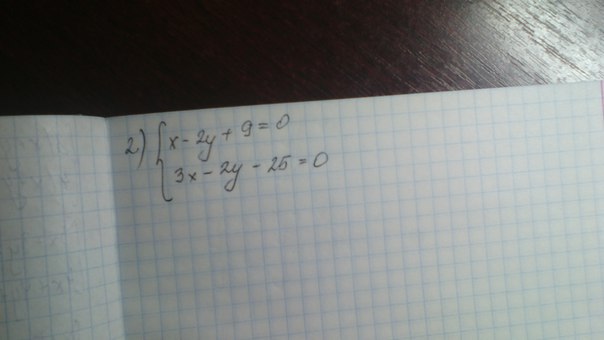 2) { x - 2y + 9 = 0
3x - 2y - 25 = 0